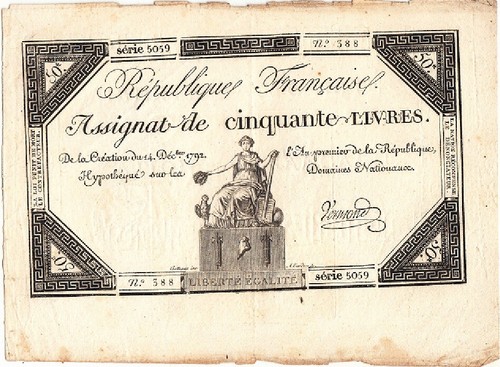 série 5059
Nº. 388
50#
50#
République Française.
Assignat de cinquante LIVRES.
De la Création du 14. Décbre. 1792. l'An premier de la République,
Hypothéqué sur les Domaines Nationaux.
LA LOI PUNIT DE MORT LE CONTREFACTEUR.
LA NATION RÉCOMPENSE LE DÉNONCIATEUR.
50#
50#
Nº. 388
LIBERTÉ ÉGALITÉ
série 5059